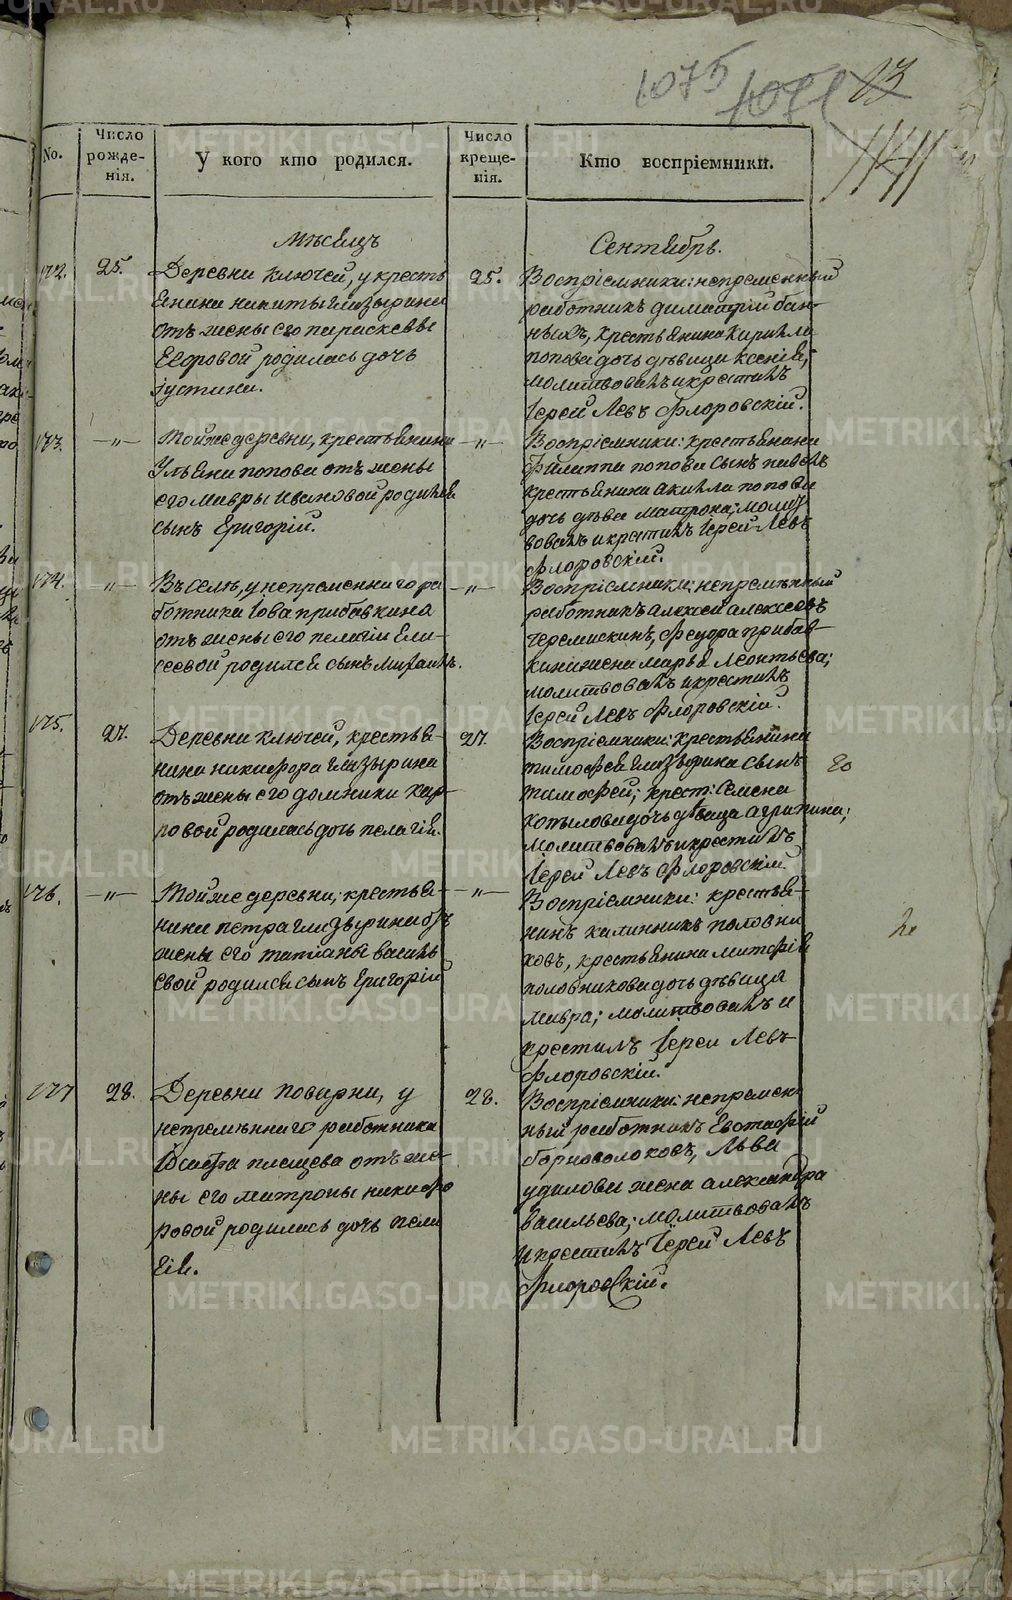 1075 1011 13
No.
Число рожде-
нія.
У кого кто родился.
Число креще-
нія.
Кто воспріемники.
Мѣсяцъ
Сентябрь.
172. 25.
Деревни Ключей, у кресть
янина никиты глазырина
отъ жены его параскевы
Егоровой родилась дочь
іустина.
25.
Воспріемники: непременный
работникъ димитрій бан-
ныхъ, крестьянина Кирилла
попова дочь дѣвица ксенія,
молитвовалъ и крестилъ
Іерей Левъ Флоровскій.
173. —"—
Той же деревни, крестьянина
Ульяна попова отъ жены
его мавры ивановой родился
сынъ Григорій.
—"—
Воспріемники: крестьянина
Филиппа попова сынъ павелъ
крестьянина акилы попова
дочь дѣва матрона; молит
вовалъ и крестилъ Іерей Левъ
Флоровскій.
174. "—
Въ селѣ, у непременнаго ра
ботника Іова прибавкина
отъ жены его пелагіи Ели-
сеевой родился сынъ михаилъ.
—"—
Воспріемники: непремѣнный
работникъ алексей алексеевъ
черемискинъ, Федора прибав-
кина жена марья Леонтьева;
молитвовалъ и крестилъ
Іерей Левъ Флоровскій.
175. 27.
Деревни ключей, крестья-
нина никифора глазырина
отъ жены его домники кар-
повой родилась дочь пелагія.
27.
Воспріемники: крестьянина
тимофея глазырина сынъ
тимофей; крест: Семена
копылова дочь дѣвица агрипина;
молитвовалъ и крестилъ
Іерей Левъ Флоровскій
176. —"—
Той же деревни; крестья-
нина петра глазырина отъ
жены его татіаны василь
евой родился сынъ Григорій
—"—
Воспріемники: крестья-
нинъ калинникъ половни
ковъ, крестьянина матфія
половникова дочь дѣвица
мавра; молитвовалъ и
крестилъ Іерей Левъ
Флоровскій.
177 28.
Деревни поварни, у
непремѣннаго работника
плещева отъ же-
ны его матроны никифо
ровой родилась дочь пела
гія.
28.
Воспріемники: непремен
ный работникъ Евстафій
борноволоковъ, Льва
удилова жена александра
васильева; молитвовалъ
и крестилъ Іерей Левъ
Флоровскій.
METRIKI.GASO-URAL.RU